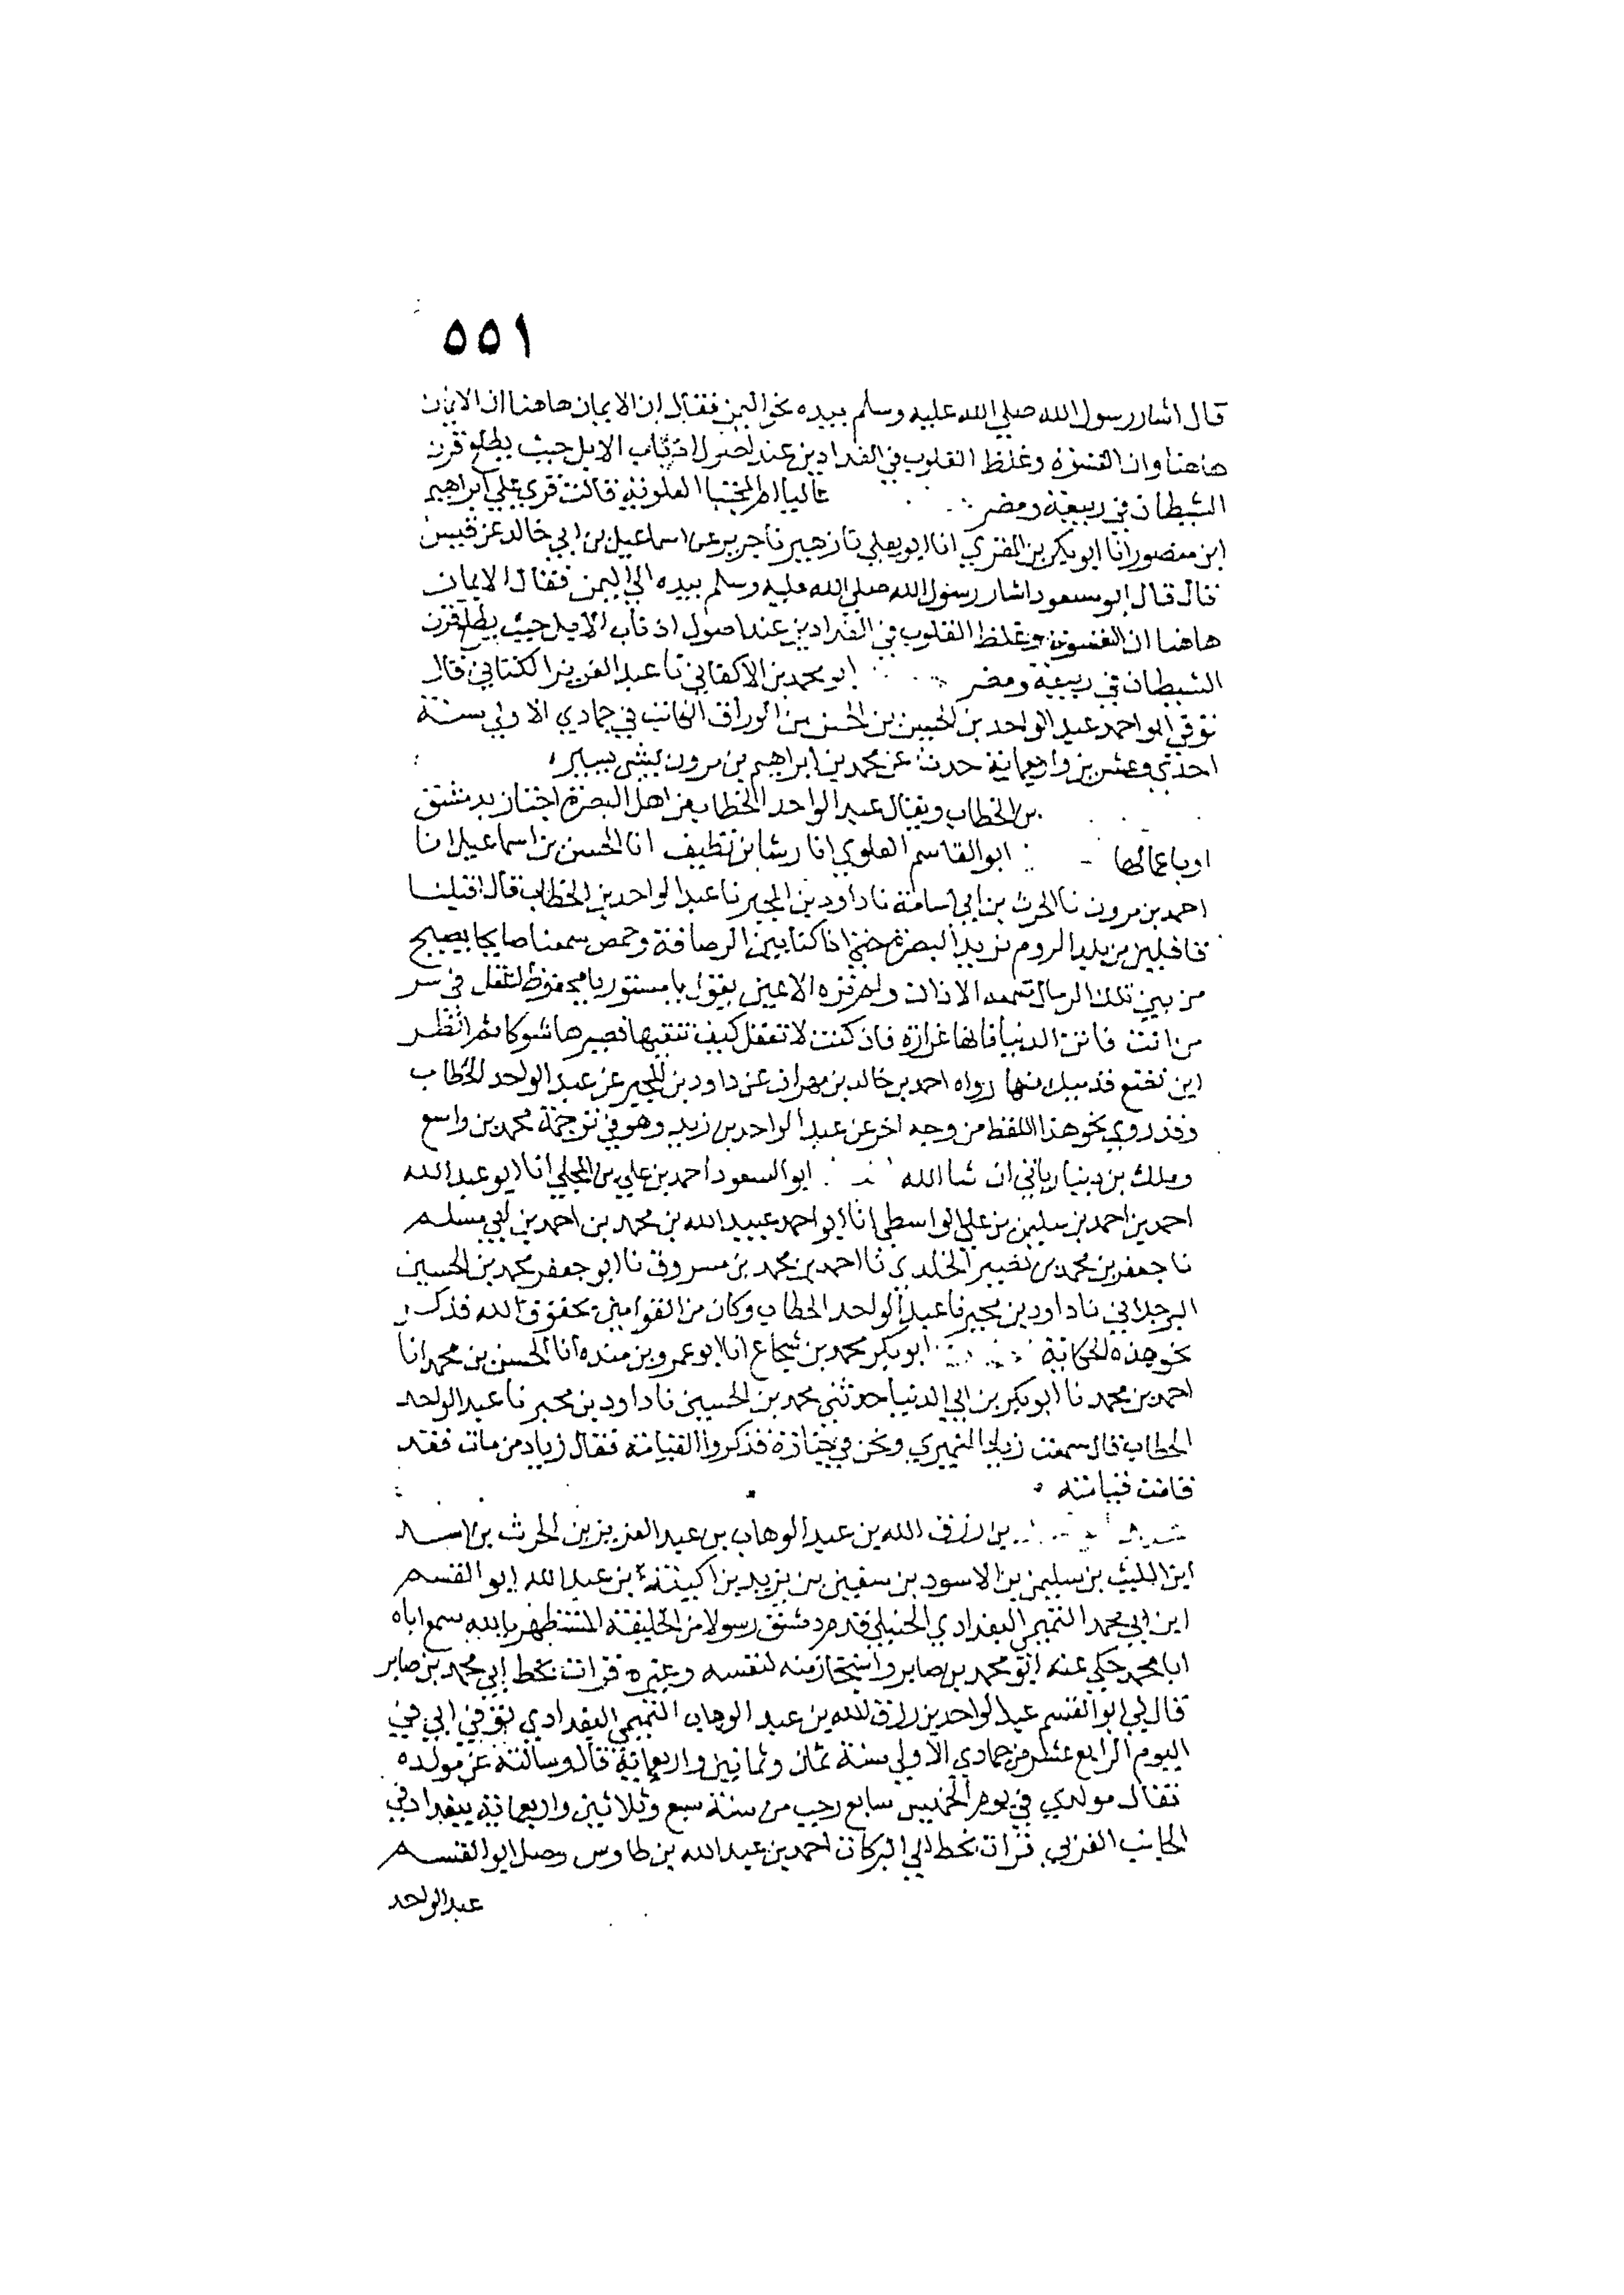 ٥٥١
قال اشار رسول الله صلي الله عليه وسلم بيده نحو اليمن فقال ان الايمان هاهنا ان الايمان
هاهنا وان القسوة وغلظ القلوب في الفدادين عند اصول اذناب الابل حيث يطلع قرن
الشيطان في ربيعة ومضر العلوية قالت قري علي ابراهيم
ابن منصور انا ابو بكر بن المقري انا ابو يعلي نا زهير نا جرير عن اسماعيل بن ابي خالد عن قيس
قال قال ابو مسعود اشار رسول الله صلي الله عليه وسلم بيده الي اليمن فقال الايمان
هاهنا ان القسوة وغلظ القلوب في الفدادين عند اصول اذناب الابل حيث يطلع قرن
الشيطان في ربيعة ومضر ابو محمد بن الاكفاني نا عبد العزيز الكتاني قال
توفي ابو احمد عبد الواحد بن الحسين بن الحسن بن الوراق الكاتب في جمادي الاولي سنة
احدي وعشرين واربعمائة حدث عن محمد بن ابراهيم بن مرون بشي يسير
بن الخطاب ويقال عبد الواحد الخطاب من اهل البصرة اجتاز بدمشق
او باعمالها ابو القاسم العلوي انا رشا بن نظيف انا الحسن بن اسماعيل انا
احمد بن مرون نا الحرث بن ابي اسامة نا داود بن المحبر نا عبد الواحد بن الخطاب قال اقبلنا
قافلين من بلد الروم نريد البصرة حتي اذا كنا بين الرصافة وحمص سمعنا صايحا يصيح
من بين تلك الرمال سمعته الاذان ولم تره الاعين يقول يا مستور يا محفوظ اعقل في ستر
من انت فاتق الدنيا فانها غرارة فان كنت لا تعقل كيف تتقيها فصيرها شوكا ثم انظر
اين تضع قدميك منها رواه احمد بن خالد بن مهران عن داود بن المحبر عن عبد الواحد الخطاب
وقد روي نحو هذا اللفظ من وجه اخر عن عبد الواحد بن زيد وهو في ترجمة محمد بن واسع
وملك بن دينار ياتي ان شا الله ابو السعود احمد بن علي بن المجلي انا ابو عبد الله
احمد بن احمد بن سليمن بن علي الواسطي انا ابو احمد عبيد الله بن محمد بن احمد بن ابي مسلم
نا جعفر بن محمد بن نصير الخلدي نا احمد بن محمد بن مسروق نا ابو جعفر محمد بن الحسين
البرجلاني نا داود بن محبر نا عبد الواحد الخطاب وكان من القوامين بحقوق الله فذكر
نحو هذه الحكاية ابو بكر محمد بن شجاع انا ابو عمرو بن منده انا الحسن بن محمد انا
احمد بن محمد نا ابو بكر بن ابي الدنيا حدثني محمد بن الحسين نا داود بن محبر نا عبد الواحد
الخطاب قال سمعت زياد النميري ونحن في جنازة فذكروا القيامة فقال زياد من مات فقد
قامت قيامته
بن رزق الله بن عبد الوهاب بن عبد العزيز بن الحرث بن اسد
ابن الليث بن سليمن بن الاسود بن سفين بن يزيد بن اكينة بن عبد الله ابو القسم
ابن ابي محمد التميمي البغدادي الحنبلي قدم دمشق رسولا من الخليفة المستظهر بالله سمع اباه
ابا محمد حكي عنه ابو محمد بن صابر واستجاز منه لنفسه وغيره قرات بخط ابي محمد بن صابر
قال لي ابو القسم عبد الواحد بن رزق الله بن عبد الوهاب التميمي البغدادي توفي ابي في
اليوم الرابع عشر من جمادي الاولي سنة ثمان وثمانين واربعمائة قال وسالته عن مولده
فقال مولدي في يوم الخميس سابع رجب من سنة سبع وثلاثين واربعمائة ببغداد في
الجانب الغربي قرات بخط ابي البركات احمد بن عبد الله بن طاوس وصل ابو القسم
عبد الواحد